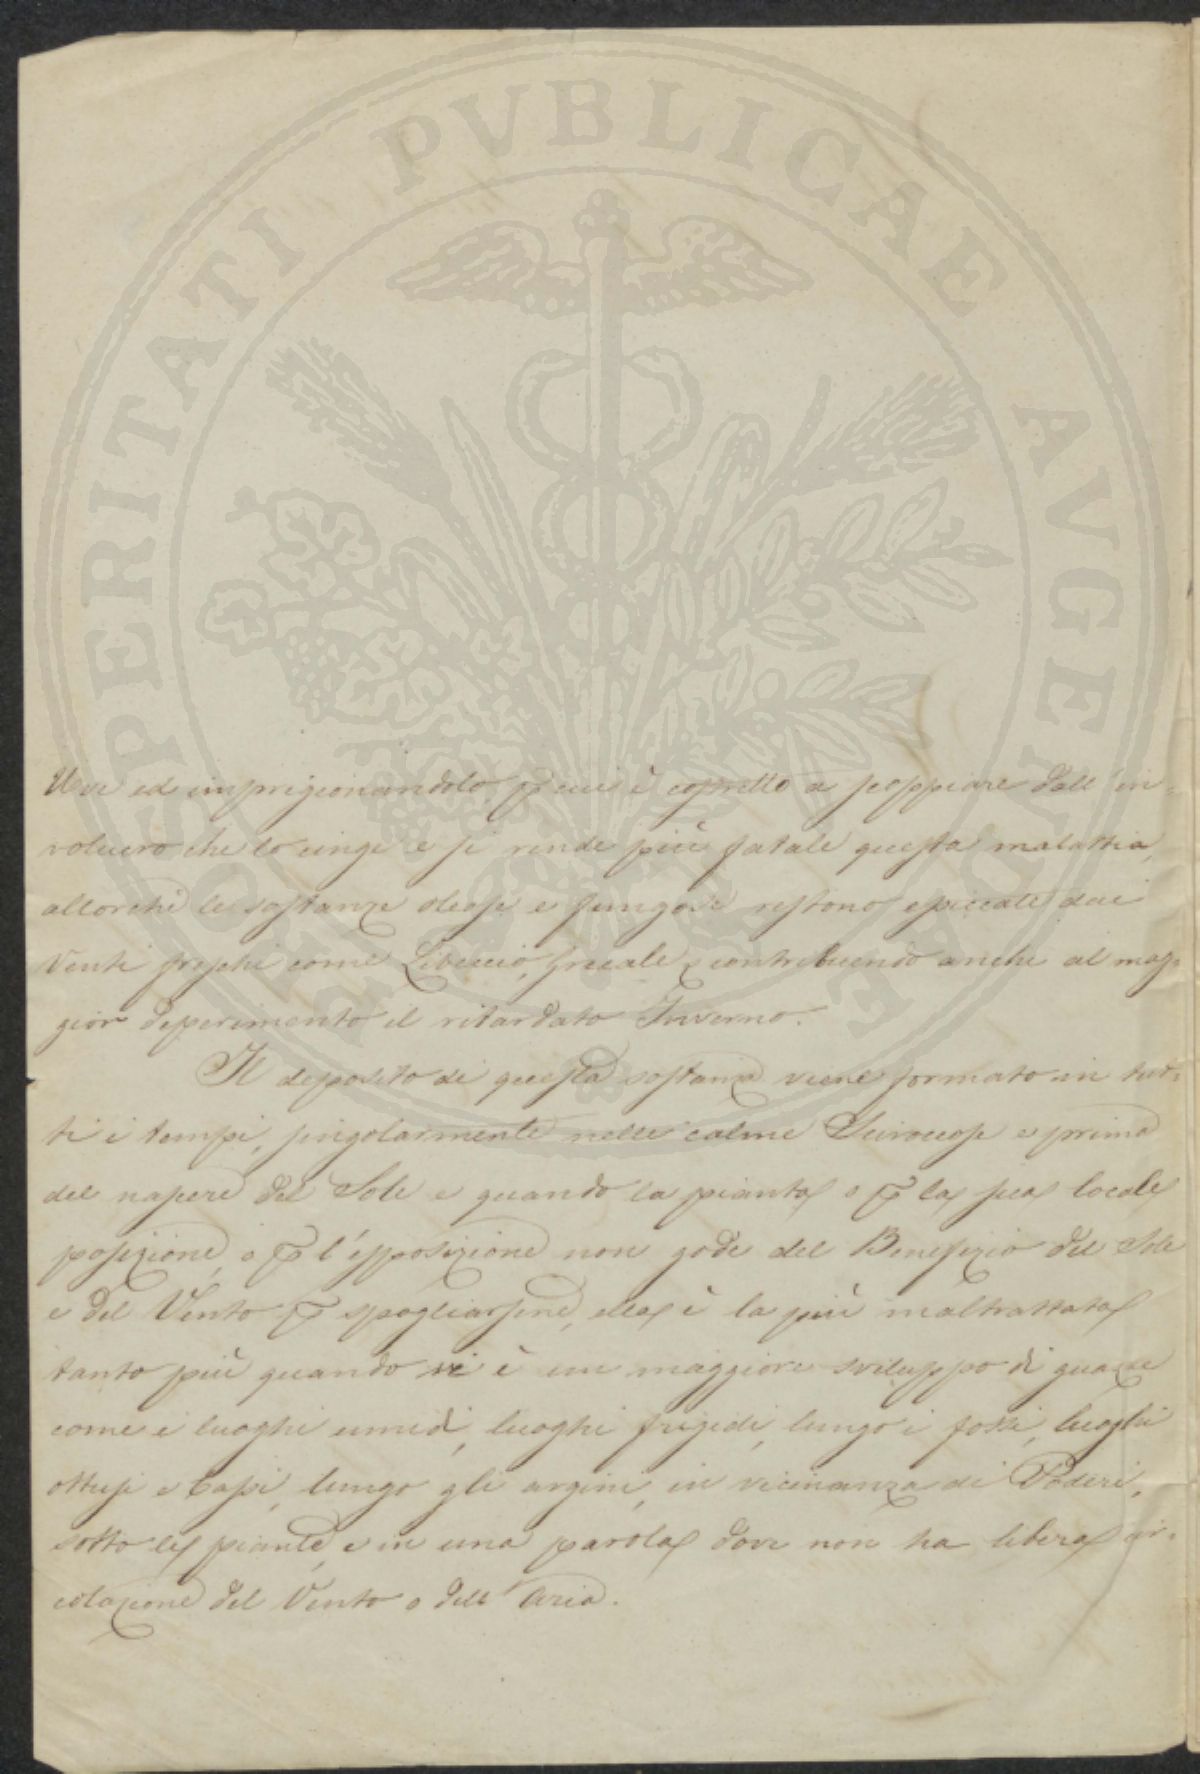 PROSPERITATI PVBLICAE AVGENDAE
Uve ed imprigionandolo, p cui è costretto a scoppiare dall'in=
volucro che lo cinge e si rende più fatale questa malattia,
allorchè le sostanze oleose e fungose restono essiccate dai
Venti freschi come Libeccio, Grecale, contribuendo anche al mag=
gior deperimento il ritardato Inverno.
Il deposito di questa sostanza viene formato in tut=
ti i tempi, singolarmente nelle calme Scirocose e prima
del nascere del Sole e quando la pianta o p la sua locale
posizione, o p l'esposizione non gode del Benefizio del Sole
e del Vento p spogliarsene, ella è la più maltrattata
tanto più quando vi è un maggiore sviluppo di guazze
come i luoghi umidi, luoghi frigidi, lungo i fossi, luoghi
ottusi e bassi, lungo gli argini, in vicinanza di Poderi,
sotto le piante, e in una parola dove non ha libera cir=
colazione del Vento o dell'Aria.